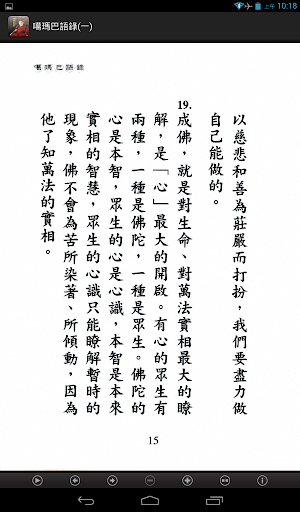 上午 10:18
噶瑪巴語錄(一)
噶瑪巴語錄
以慈悲和善為莊嚴而打扮，我們要盡力做
自己能做的。
19.
成佛，就是對生命、對萬法實相最大的瞭
解，是「心」最大的開啟。有心的眾生有
兩種，一種是佛陀，一種是眾生。佛陀的
心是本智，眾生的心是心識，本智是本來
實相的智慧，眾生的心識只能瞭解暫時的
現象，佛不會為苦所染著、所傾動，因為
他了知萬法的實相。
15